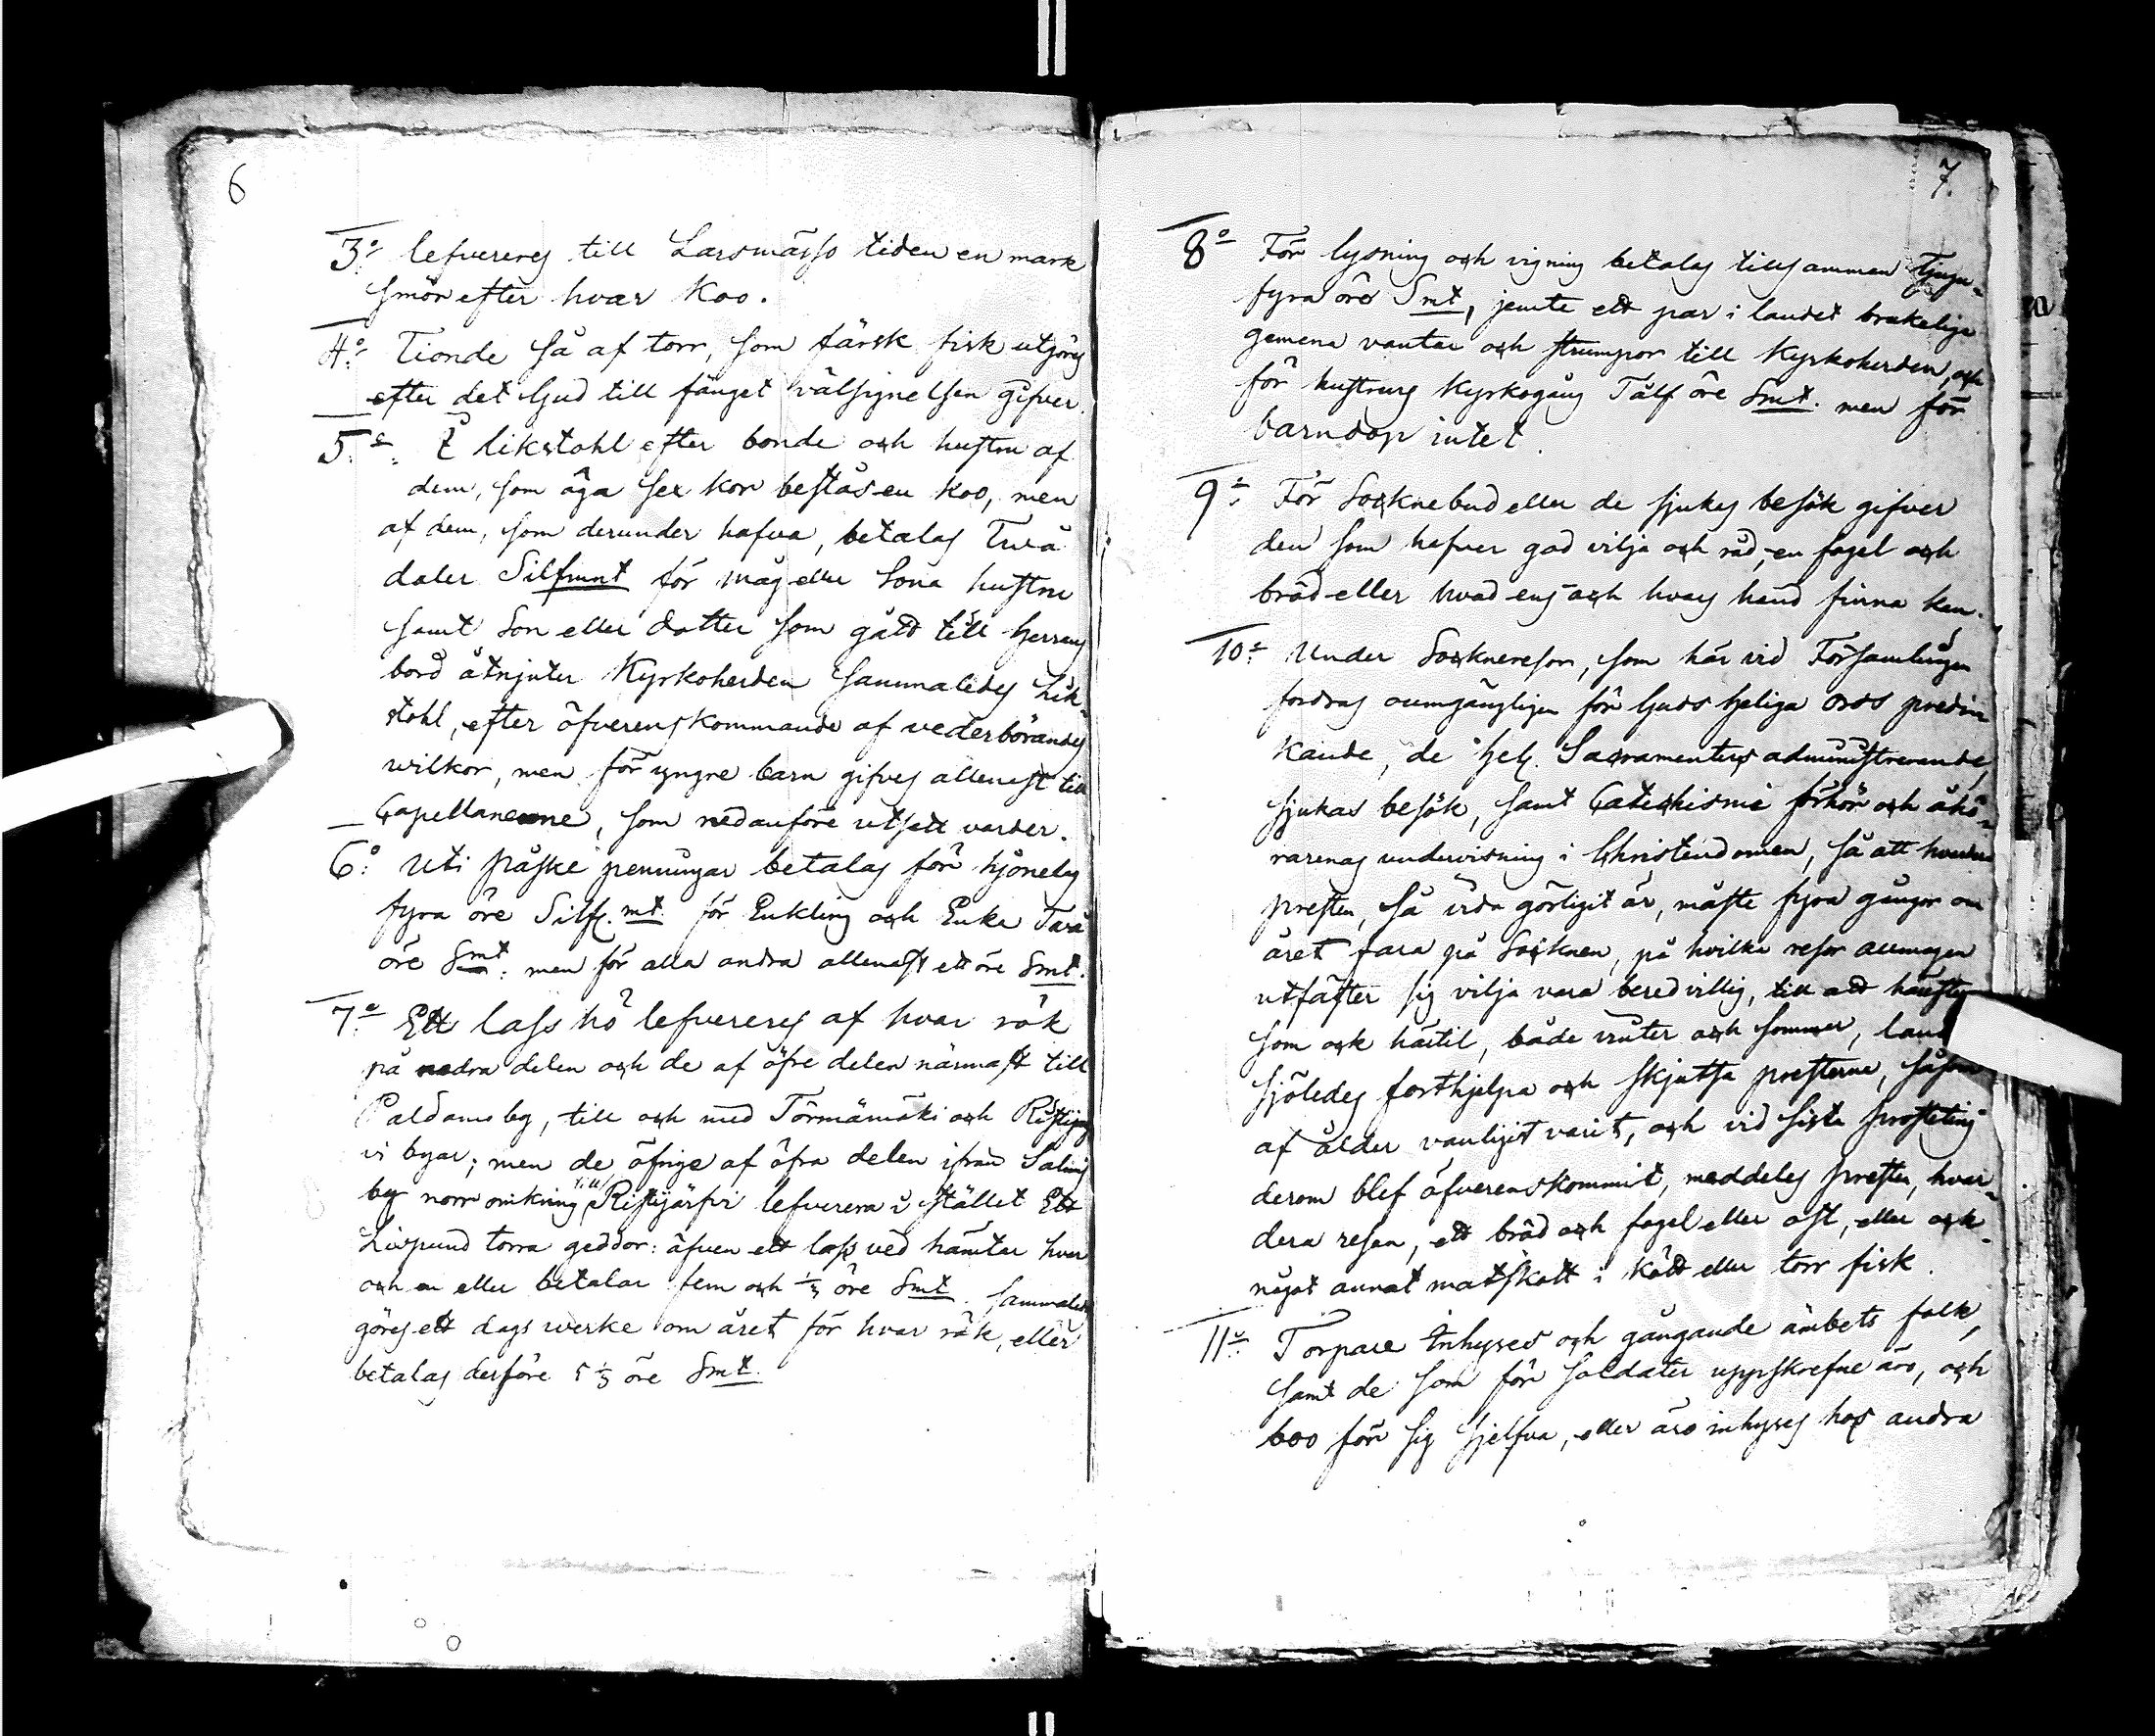 6
3:o lefvereres till Larsmässo tiden en mark
smör efter hvar Koo.
4:o Tionde så af torr, som färsk fisk utgöres
efter det Gud till fånget välsignelsen gifver.
5:o I likstohl efter bonde och hustru af
dem, som äga sex kor bestås en koo, men
af dem, som derunder hafva, betalas Twå
daler Silfrmnt för måg eller Sona hustru
samt Son eller dotter som gådt till Herrans
bord åtnjuter Kyrkoherden sammaledes Lik-
stohl, efter öfverenskommande af vederbörandes
wilkor, men för yngre barn gifves allenast till
Capellanerne, som nedanföre utsatt varder.
6:o Uti påske penningar betalas för hjonelag
fyra öre Silf. mt. för Enkling och Enka Två
öre Smt: men för alla andra allenast ett öre Smt.
7:o Ett lass hö lefvereres af hvar rök
på nedra delen och de af öfre delen närmast till
Paldamo by, till och med Törmänmäki och Ristijer
vi byar; men de öfrige af öfra delen ifrån Salmis
by norr omkring till Ristijärfvi lefverera i stället Ett
Lispund torra geddor: äfven ett lass ved hämtar hvar
och en eller betalar fem och 1/3 öre Smt. sammaledes
göres ett dags werke om året för hvar rök, eller
betalas derföre 5 1/3 öre Smt.
7.
8:o För lysning och vigning betalas tillsamman Tjugu-
fyra öre Smt, jemte ett par i landet brukelige
gemena vantar och strumpor till Kyrkoherden, och
för hustrurs Kyrkogång Tålf öre Smt. men för
barndop intet.
9:o För Socknebud eller de sjukes besök gifver
den som hafver god vilja och råd, en fogel och
bröd eller hvad ens och hvars hand finna kan.
10:o Under Socknresor, som här vid Församlingen
fordras oumgängligen för Guds heliga ords predi-
kande, de hel. Sacramenters administrerande,
sjukas besök, samt Catechismi förhör och åhö-
rarenas undervisning i Christendomen, så att hvardera
presten, så vida görligit är, måste fyra gånger om
året fara på Socknen, på hvilka resor allmogen
utfäster sig vilja vara beredvillig, till att
som ock härtil, både vinter och sommar,
sjöledes forthjelpa och skjutsa presterne, såsom
af ålder vanligit varit, och vid sista prosteting
derom blef öfverenskommit, meddeles presten, hvar-
dera resan, ett bröd och fogel eller ost, eller ock
något annat matskott i kött eller torr fisk.
11:o Torpare Inhyses och gångande ämbets folk,
samt de som för soldater uppskrefne äro, och
boo för sig sjelfva, eller äro inhyses hos andra